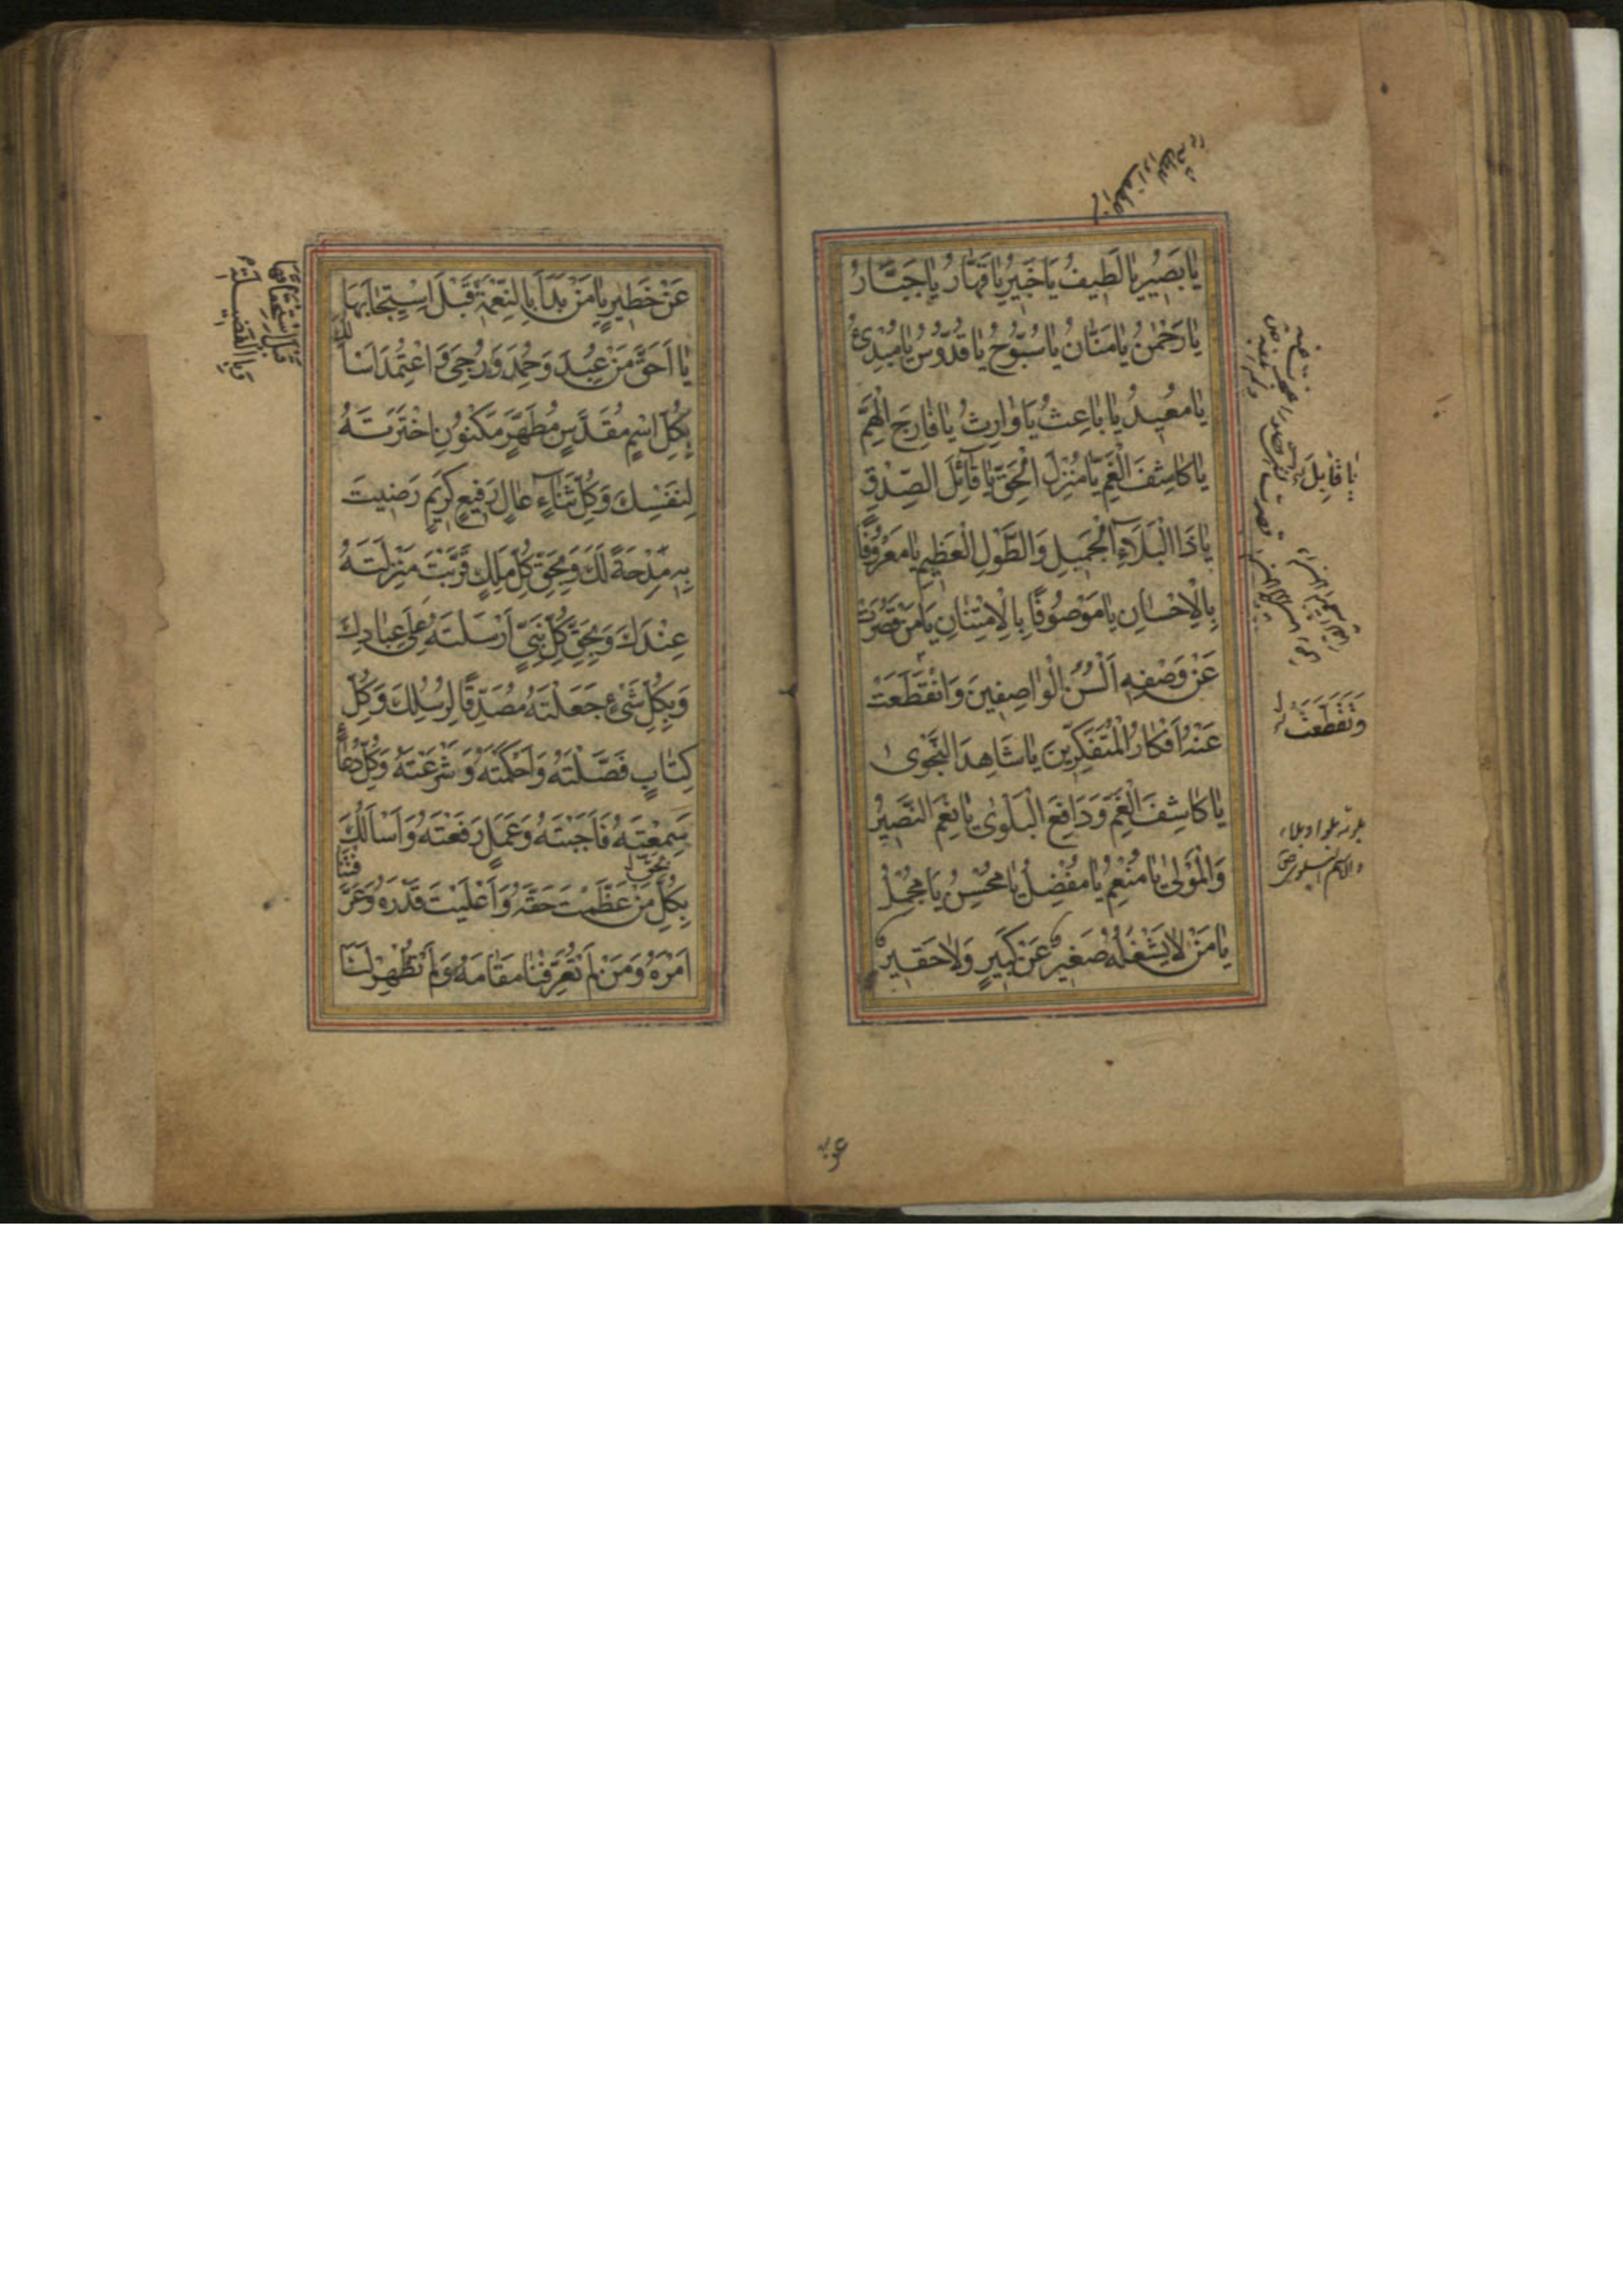 يَا بَصِيرُ يَا لَطِيفُ يَا خَبِيرُ يَا قَهَّارُ يَا جَبَّارُ
يَا رَحْمٰنُ يَا مَنَّانُ يَا سُبُّوحُ يَا قُدُّوسُ يَا مُبْدِئُ
يَا مُعِيدُ يَا بَاعِثُ يَا وَارِثُ يَا فَارِجَ الْهَمِّ
يَا كَاشِفَ الْغَمِّ يَا مُنْزِلَ الْحَقِّ يَا قَائِلَ الصِّدْقِ
يَا ذَا الْبَلَاءِ الْجَمِيلِ وَالطَّوْلِ الْعَظِيمِ يَا مَعْرُوفًا
بِالْاِحْسَانِ يَا مَوْصُوفًا بِالْاِمْتِنَانِ يَا مَنْ قَصُرَتْ
عَنْ وَصْفِهِ اَلْسُنُ الْوَاصِفِينَ وَانْقَطَعَتْ
عَنْهُ اَفْكَارُ الْمُتَفَكِّرِينَ يَا شَاهِدَ النَّجْوٰى
يَا كَاشِفَ الْغَمِّ وَدَافِعَ الْبَلْوٰى يَا نِعْمَ النَّصِيرُ
وَالْمَوْلٰى يَا مُنْعِمُ يَا مُفْضِلُ يَا مُحْسِنُ يَا مُجْمِلُ
يَا مَنْ لَا يَشْغَلُهُ صَغِيرٌ عَنْ كَبِيرٍ وَلَا حَقِيرٌ
يَا قَابِلَ
وَتَقَطَّعَتْ
عَنْ خَطِيرٍ يَا مَنْ بَدَاَ بِالنِّعْمَةِ قَبْلَ اسْتِيجَابِهَا
يَا اَحَقَّ مَنْ عُبِدَ وَحُمِدَ وَرُجِىَ وَاعْتُمِدَ اَسْاَلُكَ
بِكُلِّ اسْمٍ مُقَدَّسٍ مُطَهَّرٍ مَكْنُونٍ اخْتَرْتَهُ
لِنَفْسِكَ وَكُلِّ ثَنَاءٍ عَالٍ رَفِيعٍ كَرِيمٍ رَضِيتَ
بِهِ مِدْحَةً لَكَ وَبِحَقِّ كُلِّ مَلَكٍ قَرَّبْتَ مَنْزِلَتَهُ
عِنْدَكَ وَبِحَقِّ كُلِّ نَبِىٍّ اَرْسَلْتَهُ عَلٰى عِبَادِكَ
وَبِكُلِّ شَىْءٍ جَعَلْتَهُ مُصَدِّقًا لِرُسُلِكَ وَكُلِّ
كِتَابٍ فَصَّلْتَهُ وَاَحْكَمْتَهُ وَشَرَعْتَهُ وَكُلِّ دُعَاءٍ
سَمِعْتَهُ فَاَجَبْتَهُ وَعَمَلٍ رَفَعْتَهُ وَاَسْاَلُكَ
بِكُلِّ مَنْ عَظَّمْتَ حَقَّهُ وَاَعْلَيْتَ قَدْرَهُ وَعَرَّفْتَنَا
اَمْرَهُ وَمَنْ لَمْ تُعَرِّفْنَا مَقَامَهُ وَلَمْ تُظْهِرْ لَنَا
قَبْلَ اسْتِحْقَاقِهَا
وَيَا الْفَضِيلَةِ